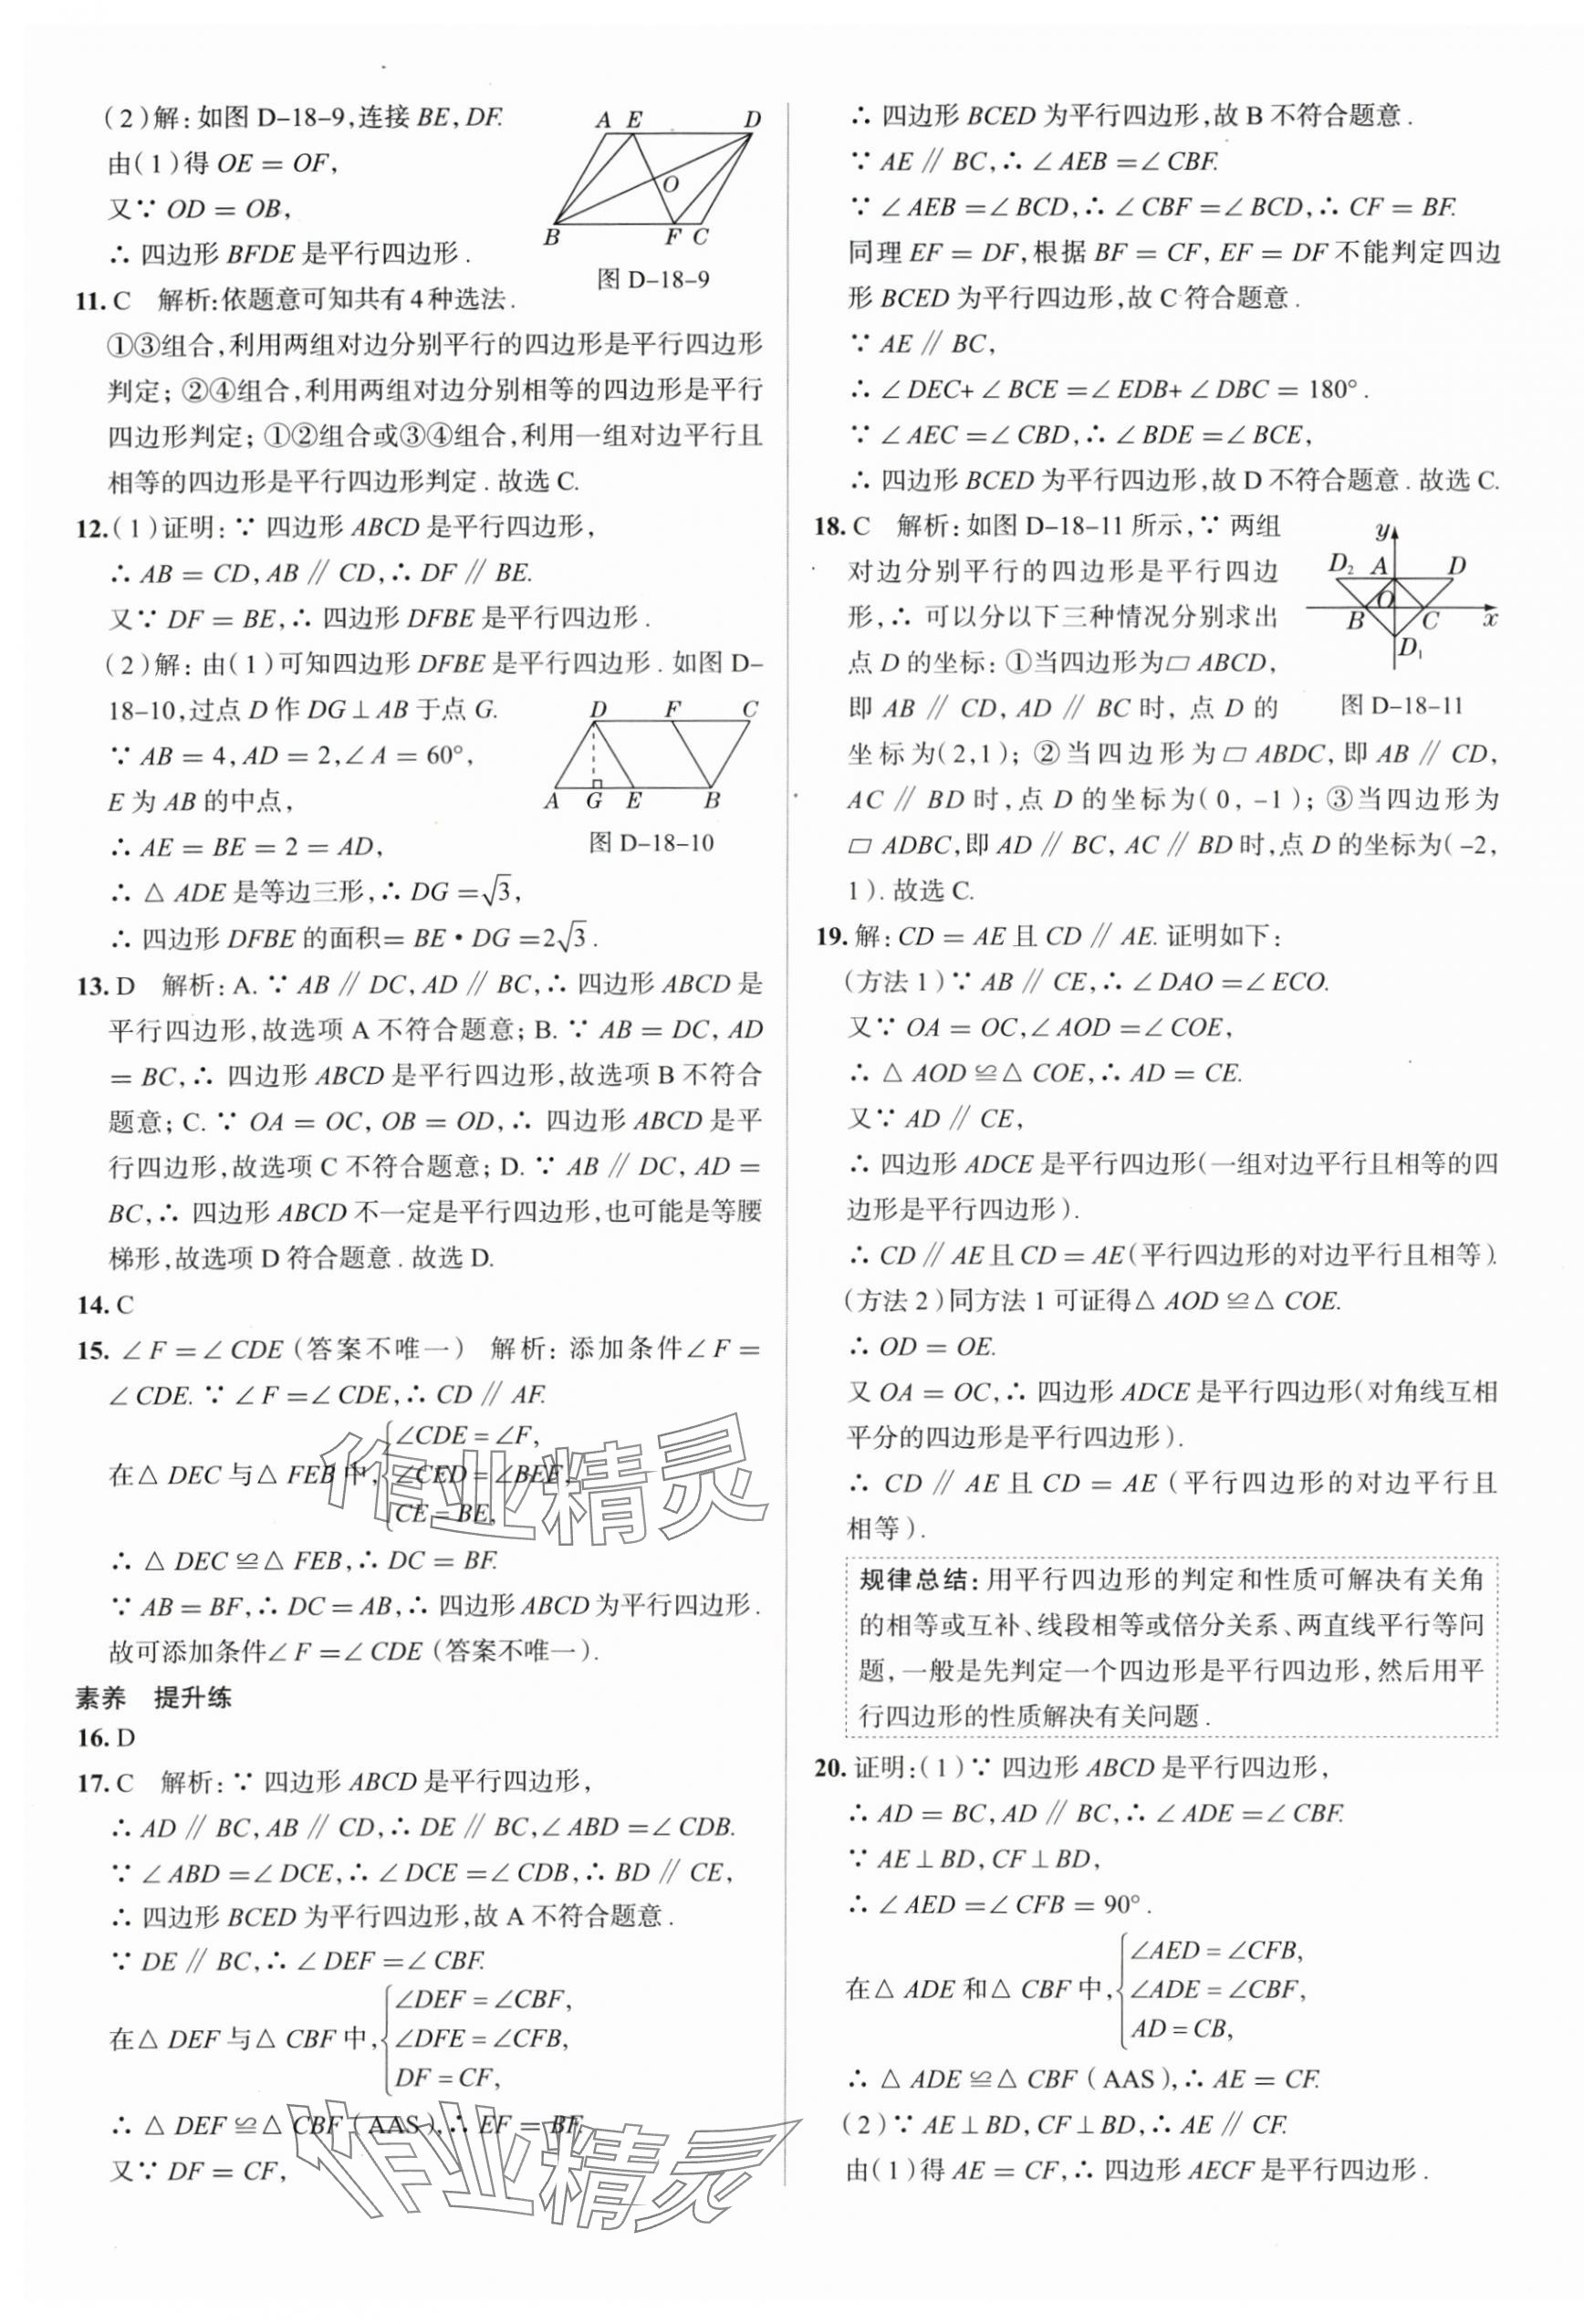 (2)解:如图 D-18-9,连接 BE,DF.
由(1)得 OE = OF,
又∵ OD = OB,
∴ 四边形 BFDE 是平行四边形.
A E D
O
B F C
图 D-18-9
11. C 解析:依题意可知共有 4 种选法.
①③组合,利用两组对边分别平行的四边形是平行四边形
判定;②④组合,利用两组对边分别相等的四边形是平行
四边形判定;①②组合或③④组合,利用一组对边平行且
相等的四边形是平行四边形判定.故选 C.
12. (1)证明:∵ 四边形 ABCD 是平行四边形,
∴ AB = CD,AB // CD,∴ DF // BE.
又∵ DF = BE,∴ 四边形 DFBE 是平行四边形.
(2)解:由(1)可知四边形 DFBE 是平行四边形.如图 D-
18-10,过点 D 作 DG ⊥ AB 于点 G.
∵ AB = 4,AD = 2,∠A = 60°,
E 为 AB 的中点,
∴ AE = BE = 2 = AD,
∴ △ADE 是等边三形,∴ DG = √3,
D F C
A G E B
图 D-18-10
∴ 四边形 DFBE 的面积= BE·DG = 2√3.
13. D 解析:A. ∵ AB // DC,AD // BC,∴ 四边形 ABCD 是
平行四边形,故选项 A 不符合题意;B. ∵ AB = DC,AD
= BC,∴ 四边形 ABCD 是平行四边形,故选项 B 不符合
题意;C. ∵ OA = OC,OB = OD,∴ 四边形 ABCD 是平
行四边形,故选项 C 不符合题意;D. ∵ AB // DC,AD =
BC,∴ 四边形 ABCD 不一定是平行四边形,也可能是等腰
梯形,故选项 D 符合题意.故选 D.
14. C
15. ∠F = ∠CDE(答案不唯一) 解析:添加条件∠F =
∠CDE. ∵ ∠F = ∠CDE,∴ CD // AF.
在△DEC 与△FEB 中,{∠CDE = ∠F,
∠CED = ∠BEF,
CE = BE,
∴ △DEC ≌ △FEB,∴ DC = BF.
∵ AB = BF,∴ DC = AB,∴ 四边形 ABCD 为平行四边形.
故可添加条件∠F = ∠CDE(答案不唯一).
素养 提升练
16. D
17. C 解析:∵ 四边形 ABCD 是平行四边形,
∴ AD // BC,AB // CD,∴ DE // BC,∠ABD = ∠CDB.
∵ ∠ABD = ∠DCE,∴ ∠DCE = ∠CDB,∴ BD // CE,
∴ 四边形 BCED 为平行四边形,故 A 不符合题意.
∵ DE // BC,∴ ∠DEF = ∠CBF.
在△DEF 与△CBF 中,{∠DEF = ∠CBF,
∠DFE = ∠CFB,
DF = CF,
∴ △DEF ≌ △CBF(AAS),∴ EF = BF.
又∵ DF = CF,
∴ 四边形 BCED 为平行四边形,故 B 不符合题意.
∵ AE // BC,∴ ∠AEB = ∠CBF.
∵ ∠AEB = ∠BCD,∴ ∠CBF = ∠BCD,∴ CF = BF.
同理 EF = DF,根据 BF = CF,EF = DF 不能判定四边
形 BCED 为平行四边形,故 C 符合题意.
∵ AE // BC,
∴ ∠DEC+∠BCE = ∠EDB+∠DBC = 180°.
∵ ∠AEC = ∠CBD,∴ ∠BDE = ∠BCE,
∴ 四边形 BCED 为平行四边形,故 D 不符合题意.故选 C.
18. C 解析:如图 D-18-11 所示,∵ 两组
对边分别平行的四边形是平行四边
形,∴ 可以分以下三种情况分别求出
点 D 的坐标:①当四边形为▱ABCD,
即 AB // CD,AD // BC 时,点 D 的
y
D2 A D
O
B C x
D1
图 D-18-11
坐标为(2,1);②当四边形为▱ABDC,即 AB // CD,
AC // BD 时,点 D 的坐标为(0,-1);③当四边形为
▱ADBC,即 AD // BC,AC // BD 时,点 D 的坐标为(-2,
1).故选 C.
19. 解:CD = AE 且 CD // AE. 证明如下:
(方法 1)∵ AB // CE,∴ ∠DAO = ∠ECO.
又∵ OA = OC,∠AOD = ∠COE,
∴ △AOD ≌ △COE,∴ AD = CE.
又∵ AD // CE,
∴ 四边形 ADCE 是平行四边形(一组对边平行且相等的四
边形是平行四边形).
∴ CD // AE 且 CD = AE(平行四边形的对边平行且相等).
(方法 2)同方法 1 可证得△AOD ≌ △COE.
∴ OD = OE.
又 OA = OC,∴ 四边形 ADCE 是平行四边形(对角线互相
平分的四边形是平行四边形).
∴ CD // AE 且 CD = AE(平行四边形的对边平行且
相等).
规律总结:用平行四边形的判定和性质可解决有关角
的相等或互补、线段相等或倍分关系、两直线平行等问
题,一般是先判定一个四边形是平行四边形,然后用平
行四边形的性质解决有关问题.
20. 证明:(1)∵ 四边形 ABCD 是平行四边形,
∴ AD = BC,AD // BC,∴ ∠ADE = ∠CBF.
∵ AE ⊥ BD,CF ⊥ BD,
∴ ∠AED = ∠CFB = 90°.
在△ADE 和△CBF 中,{∠AED = ∠CFB,
∠ADE = ∠CBF,
AD = CB,
∴ △ADE ≌ △CBF(AAS),∴ AE = CF.
(2)∵ AE ⊥ BD,CF ⊥ BD,∴ AE // CF.
由(1)得 AE = CF,∴ 四边形 AECF 是平行四边形.
作业精灵
作业精灵